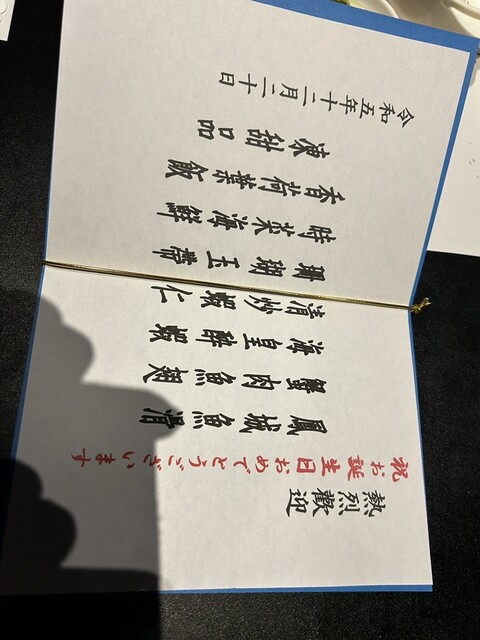 熱烈歡迎
祝お誕生日おめでとうございます
鳳城魚滑
蟹肉魚翅
海皇酔蝦
清炒蝦仁
珊瑚玉帶
時菜海鮮
香荷葉飯
凍甜品
令和五年十二月二十日